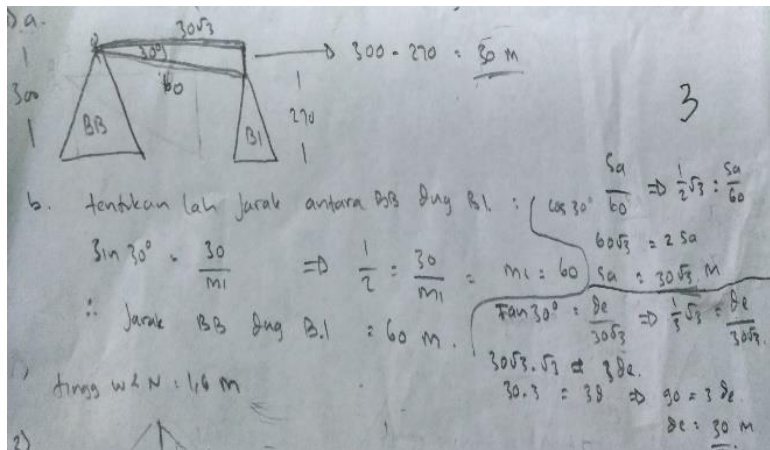 a.
30√3
300
30°
60
BB
B1
270
→ 300 - 270 = 30 m
3
b. tentukan lah jarak antara BB dug B1 :
sin 30° = 30/mi ⇒ 1/2 = 30/mi = mi = 60
∴ Jarak BB dug B.1 = 60 m.
cos 30° Sa/60 ⇒ 1/2√3 = Sa/60
60√3 = 2 Sa
Sa = 30√3 m
Tan 30° = de/30√3 ⇒ 1/3√3 = de/30√3.
30√3.√3 = 3de.
30.3 = 3d ⇒ 90 = 3de
de = 30 m
tingg W & N = 1,6 m
2)